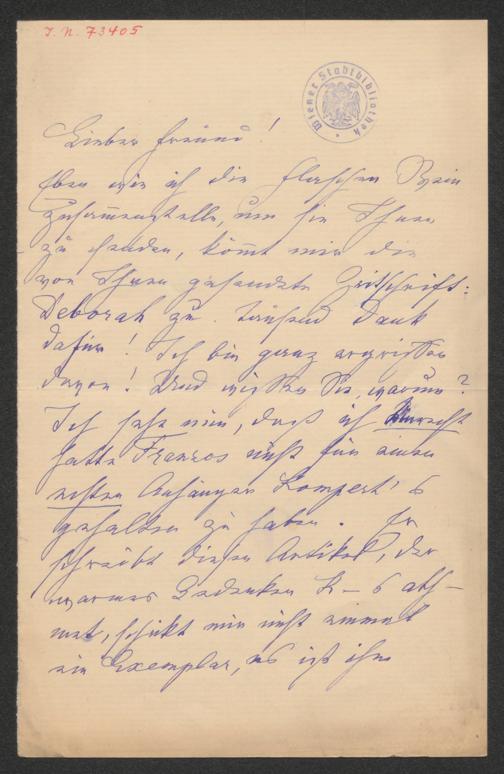 J. N. 73405
Wiener Stadtbibliothek
Lieber Freund!
Eben wie ich die Flaschen Wein
zusammenstelle, um sie Ihnen
zu senden, kommt mir die
von Ihnen gesendete Zeitschrift:
Deborah zu. Tausend Dank
dafür! Ich bin ganz ergriffen
davon! Und wissen Sie, warum?
Ich sehe nun, daß ich Unrecht
hatte Franzos nicht für einen
echten Anhänger Kompert's
gehalten zu haben. Er
schreibt diesen Artikel, der
warmes Gedenken K–s ath-
met, schickt mir nicht einmal
ein Exemplar, es ist ihm